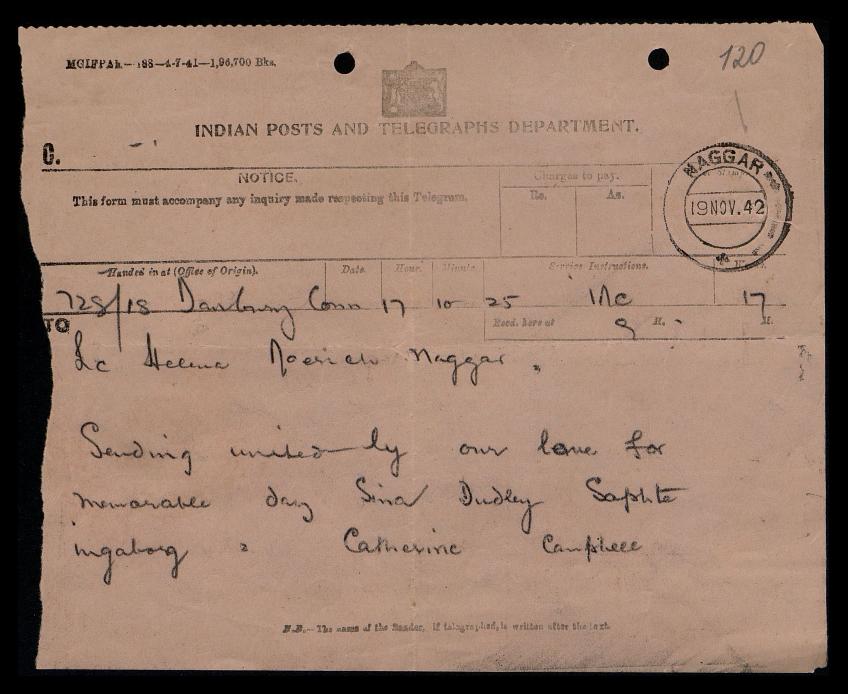 MGIFPAh.— 188—4-7-41—1,96,700 Bks.
120
INDIAN POSTS AND TELEGRAPHS DEPARTMENT.
C.
NOTICE.
This form must accompany any inquiry made respecting this Telegram.
Charges to pay.
Rs. As.
NAGGAR
19 NOV. 42
Handed in at (Office of Origin). Date. Hour. Minute. Service Instructions.
728/18 Danbury Conn 17 10 25 17
TO
Recd. here at H. M.
Lc Helena Roerich Naggar
Sending united—ly our love for
memorable day Sina Dudley Saphite
ingaborg = Catherine Campbell
N.B.— The name of the Sender, if telegraphed, is written after the text.